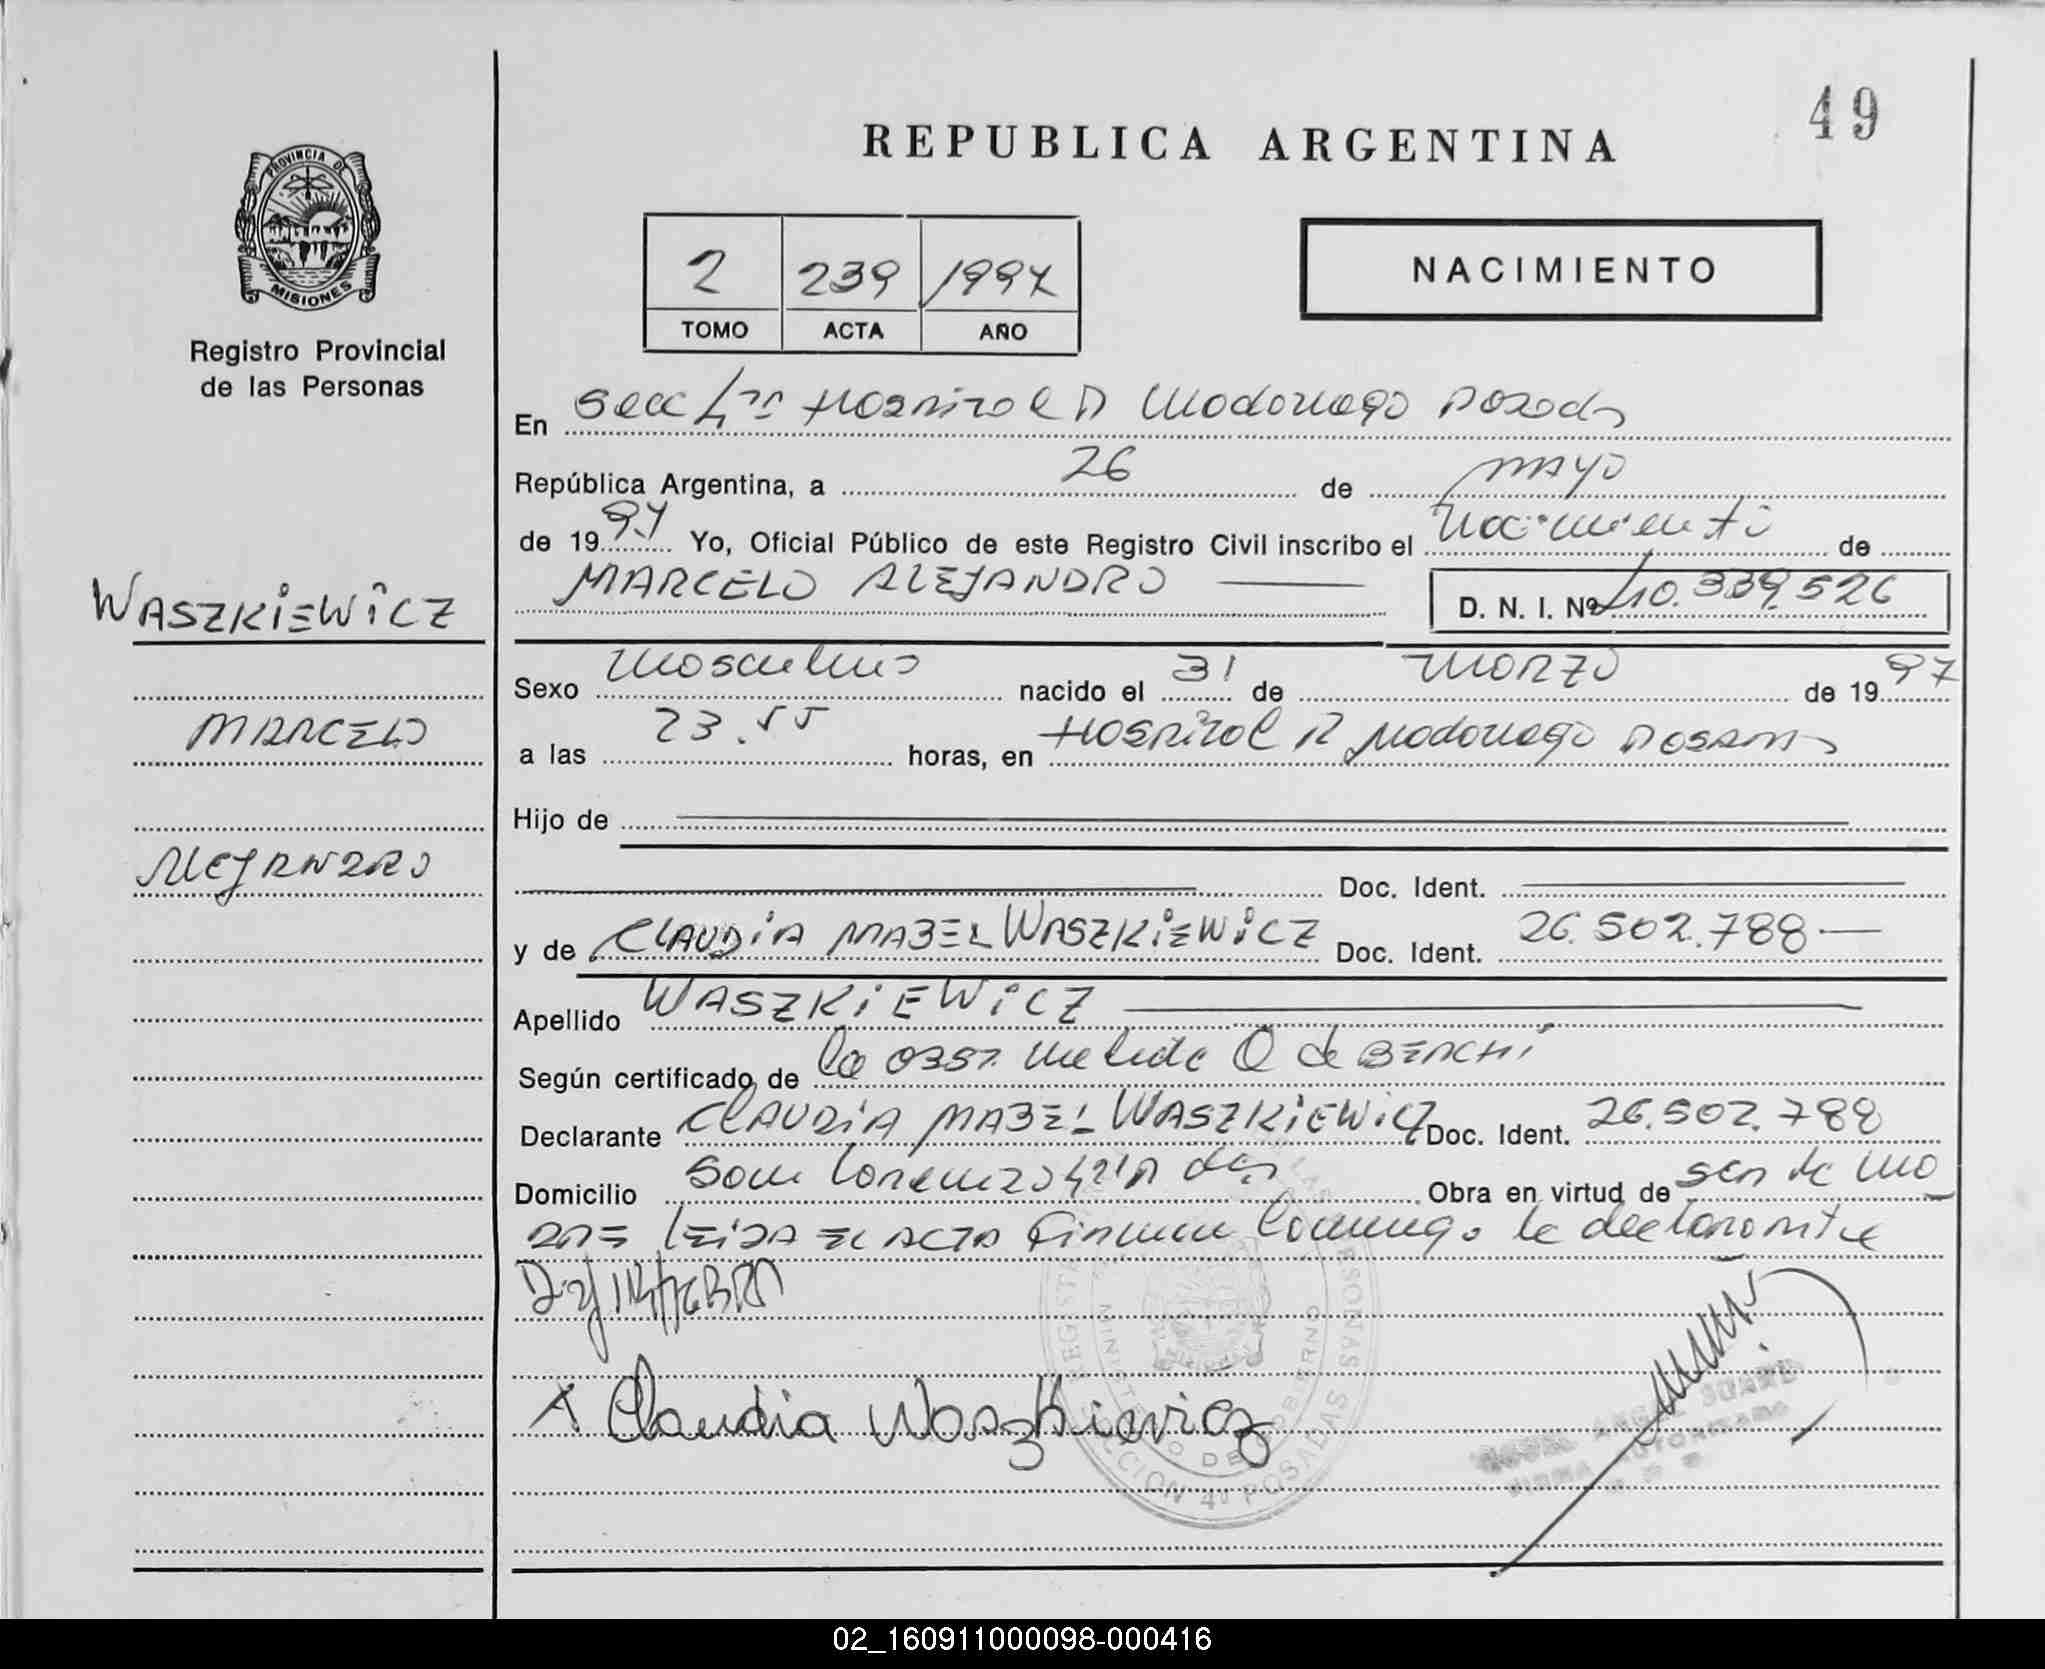 49
REPUBLICA ARGENTINA
PROVINCIA DE
MISIONES
Registro Provincial
de las Personas
2 239 1997
TOMO ACTA AÑO
NACIMIENTO
En Secc 4ta Hospital R Madariaga Posadas
República Argentina, a 26 de mayo
de 1997 Yo, Oficial Público de este Registro Civil inscribo el Nacimiento de
WASZKIEWICZ
MARCELO ALEJANDRO
D. N. I. Nº 40.339.526
Sexo Masculino nacido el 31 de Marzo de 1997
MARCELO
a las 23.55 horas, en Hospital R Madariaga Posadas
Hijo de
ALEJANDRO
Doc. Ident.
y de CLAUDIA MABEL WASZKIEWICZ Doc. Ident. 26.502.788
Apellido WASZKIEWICZ
Según certificado de la obst. Q de
Declarante CLAUDIA MABEL WASZKIEWICZ Doc. Ident. 26.502.788
Domicilio San Lorenzo Obra en virtud de ser la ma
dre LEIDA EL ACTA Firman conmigo la declarante
X Claudia Waszkievicz
REGISTRO PERSONAS
MINISTERIO DE GOBIERNO
SECCION 4º POSADAS
FIRMA AUTORIZADA
02_160911000098-000416